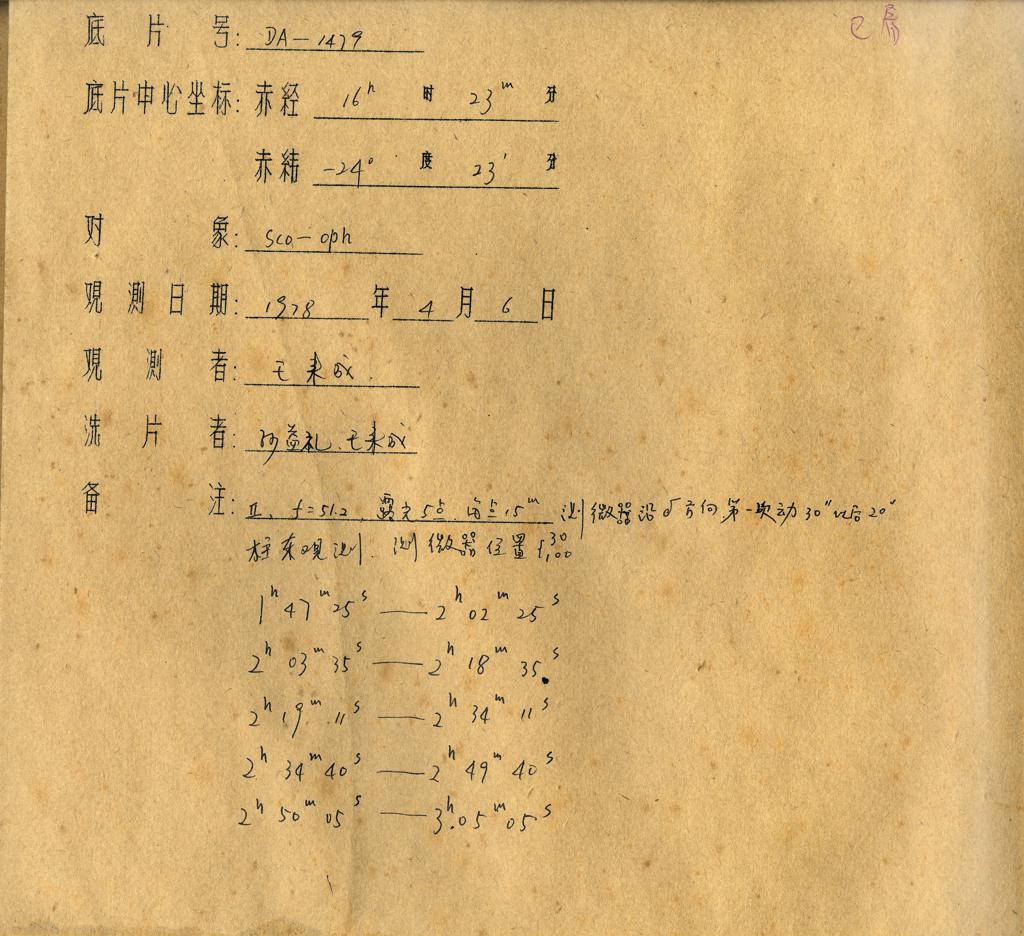 底片号: DA-1479
底片中心坐标: 赤经 16ʰ 时 23ᵐ 分
赤纬 -24° 度 23′ 分
对象: Sco-oph
观测日期: 1978 年 4 月 6 日
观测者: 王来成.
洗片者: 益礼、王来成
备注: II. f=51.2, 露光5点, 每点15ᵐ 测微器沿δ方向第一次动30″以后20″
柱东观测. 测微器位置
1ʰ 47ᵐ 25ˢ — 2ʰ 02ᵐ 25ˢ
2ʰ 03ᵐ 35ˢ — 2ʰ 18ᵐ 35ˢ.
2ʰ 19ᵐ 11ˢ — 2ʰ 34ᵐ 11ˢ
2ʰ 34ᵐ 40ˢ — 2ʰ 49ᵐ 40ˢ
2ʰ 50ᵐ 05ˢ — 3ʰ.05ᵐ 05ˢ